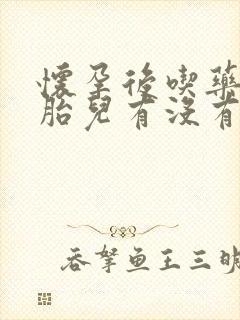 懷孕後喫藥
胎兒有沒有
吞拏魚王三明